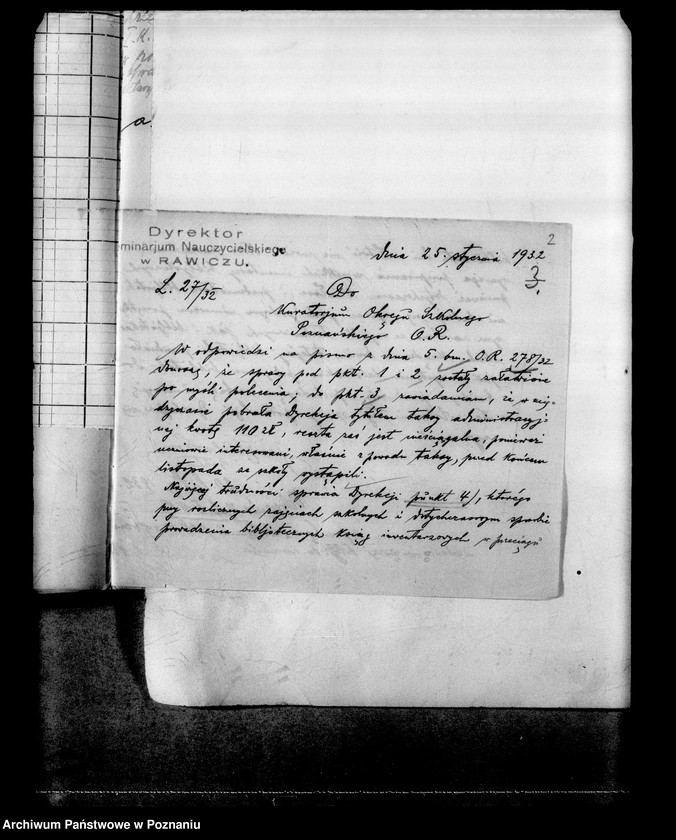 2
Dyrektor
eminarjum Nauczycielskiego
w RAWICZU.
dnia 25. stycznia 1932
L. 27/32
Do
Kuratorjum Okręgu Szkolnego
Poznańskiego O.R.
W odpowiedzi na pismo z dnia 5. bm. O.R. 278/32
donoszę, że sprawy pod pkt. 1 i 2 zostały załatwione
po myśli polecenia; do pkt. 3, zawiadamiam, że w
pobrała Dyrekcja tytułem taksy administracyj-
nej kwotę 110 zł, reszta zaś jest nieściągalna, ponieważ
uczniowie interesowani, właśnie z powodu taksy, przed końcem
listopada ze szkoły wystąpili.
Najwięcej trudności sprawia Dyrekcji punkt 4), którego
przy rozlicznych zajęciach szkolnych i dotychczasowym sposobie
prowadzenia bibljotecznych ksiąg inwentarzowych w przeciągu
Archiwum Państwowe w Poznaniu